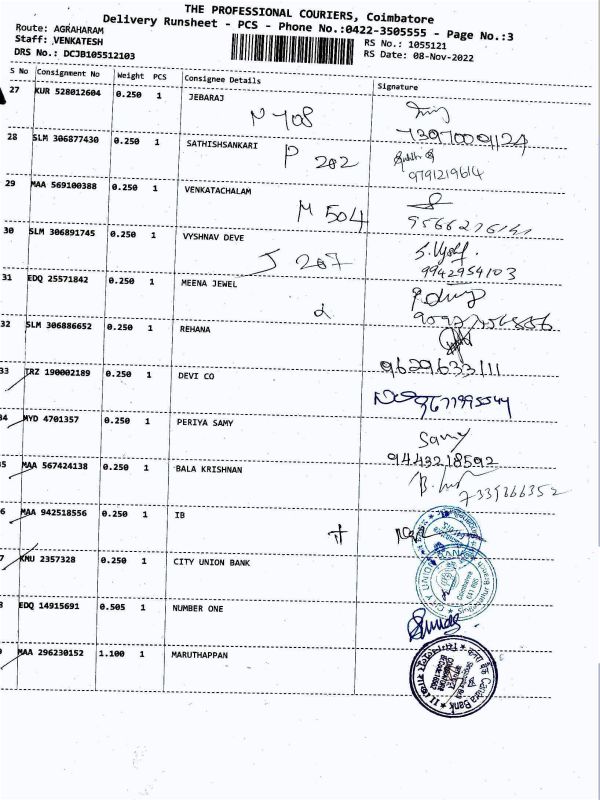 THE PROFESSIONAL COURIERS, Coimbatore
Delivery Runsheet - PCS - Phone No.:0422-3505555 - Page No.:3
Route: AGRAHARAM
Staff: VENKATESH
DRS No.: DCJB105512103
RS No.: 1055121
RS Date: 08-Nov-2022
S No Consignment No Weight PCS Consignee Details Signature
27 KUR 528012604 0.250 1 JEBARAJ
N 408
73970001124
28 SLM 306877430 0.250 1 SATHISHSANKARI
P 202
9791219614
29 MAA 569100388 0.250 1 VENKATACHALAM
M 504
30 SLM 306891745 0.250 1 VYSHNAV DEVE
J 207
9942954103
31 EDQ 25571842 0.250 1 MEENA JEWEL
32 SLM 306886652 0.250 1 REHANA
9629633111
33 TRZ 190002189 0.250 1 DEVI CO
34 MYD 4701357 0.250 1 PERIYA SAMY
Samy
9443218592
5 MAA 567424138 0.250 1 BALA KRISHNAN
7339266352
6 MAA 942518556 0.250 1 IB
7 KMU 2357328 0.250 1 CITY UNION BANK
CITY UNION
EDQ 14915691 0.505 1 NUMBER ONE
MAA 296230152 1.100 1 MARUTHAPPAN
Canara Bank